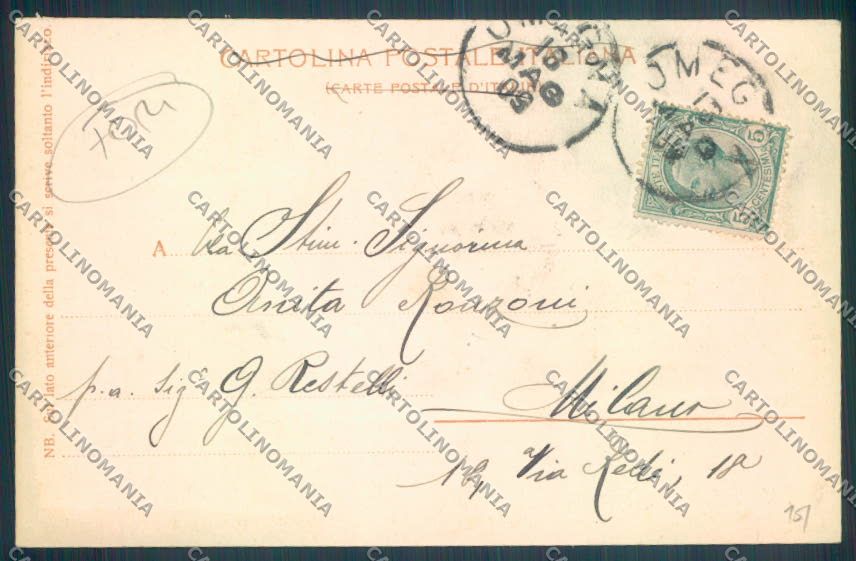 CARTOLINA POSTALE ITALIANA
(CARTE POSTALE D'ITALIE)
NB. Sul lato anteriore della presente si scrive soltanto l'indirizzo.
OMEGNA
OMEG
5
CENTESIMI
5
A
La Stim. Signorina
Anita Ronzoni
p. a. Sig. G. Restelli
Milano
Via Redi, 18
15/
CARTOLINOMANIA